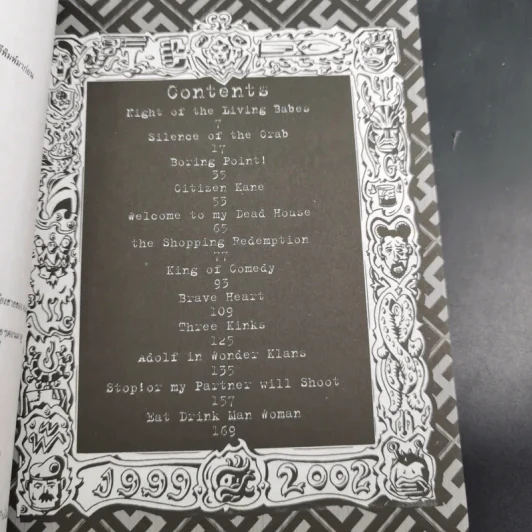 Contents
Night of the Living Babes
7
Silence of the Crab
17
Boring Point!
35
Citizen Kane
53
Welcome to my Dead House
65
the Shopping Redemption
77
King of Comedy
93
Brave Heart
109
Three Kinks
125
Adolf in Wonder Klans
135
Stop!or my Partner will Shoot
157
Eat Drink Man Woman
169
1999 2002